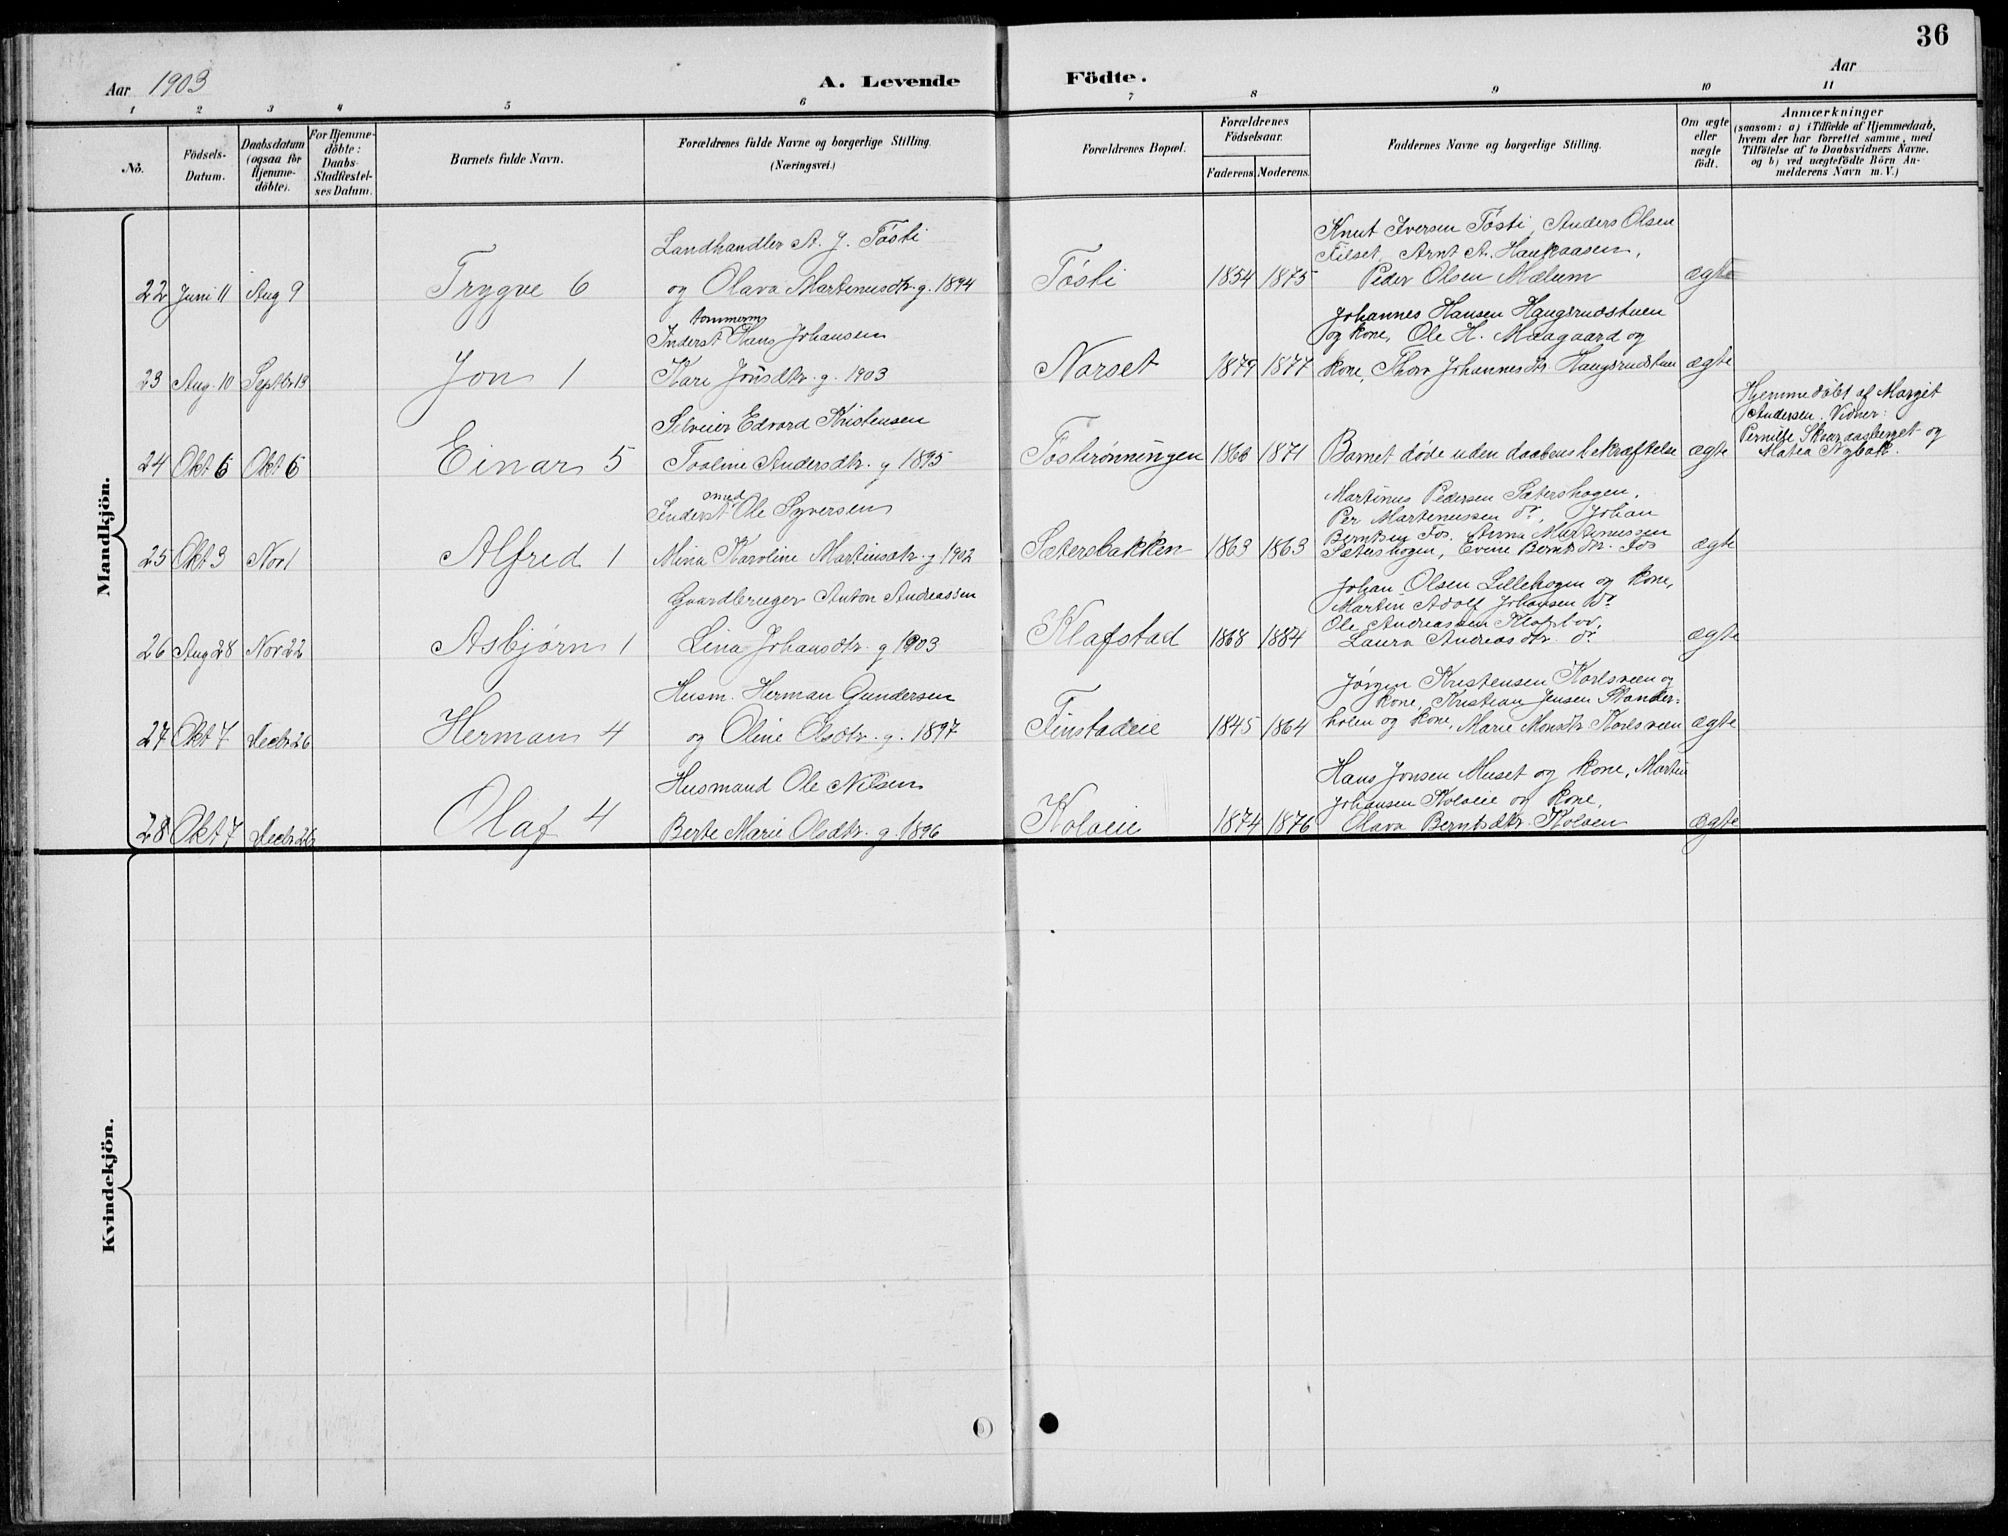 36
Aar 1903
A. Levende Födte.
Aar
1 2 3 4 5 6 7 8 9 10 11
No.
Födsels-
Datum.
Daabsdatum
(ogsaa for
Hjemme-
döbte).
For Hjemme-
döbte:
Daabs-
Stadfæstel-
ses Datum.
Barnets fulde Navn.
Forældrenes fulde Navne og borgerlige Stilling.
(Næringsvei.)
Forældrenes Bopæl.
Forældrenes
Födselsaar.
Faderens. Moderens.
Faddernes Navne og borgerlige Stilling.
Om ægte
eller
uægte
født.
Anmærkninger
(saasom: a) i Tilfælde af Hjemmedaab,
hvem der har forrettet samme, med
Tilföielse af to Daabsvidners Navne,
og b) ved uægtefödte Börn An-
melderens Navn m. V.)
Mandkjön.
Landhandler A. J. Tøsti
Knut Iversen Tøsti, Anders Olsen
Filset, Arnt A. Haukaasen,
22 Juni 11 Aug 9 Trygve 6 og Olava Martinusdtr. g. 1894 Tøsti 1854 1875 Peder Olsen Mælum ægte
tømmerm
Inderst Hans Johansen
Johannes Hansen Haugsrudstuen
og kone, Ole H. Maagaard og
23 Aug. 10 Septbr 13 Jon 1 Kari Jonsdtr. g. 1903 Narset 1879 1877 kone, Thora Johannesdtr. Haugsrudstuen ægte
Hjemmedøbt af Margit
Andersen. Vidner:
Pernille Skaardasberget og
Matea Nybak.
Selveier Edvard Kristensen
24 Okt 6 Okt. 6 Einar 5 Toline Andersdtr. g 1895 Tøstirønningen 1866 1871 Barnet døde uden daabens bekræftelse ægte
smed
Inderst Ole Syversen
Martinus Pedersen Sætershagen,
Per Martinussen do, Johan
Berntsen Fos, Anna Martinussen
25 Okt 3 Nov 1 Alfred 1 Mina Karoline Martinsdtr. g 1902 Sætersbakken 1863 1863 Sætershagen, Evine Berntsdtr. Fos ægte
Gaardbruger Anton Andreassen
Johan Olsen Lillehagen og kone,
Martin Adolf Johansen do
Ole Andreassen Kløpbov,
26 Aug 28 Nov 22 Asbjørn 1 Lina Johansdtr. g 1903 Klafstad 1868 1884 Laura Andreasdtr. do ægte
Husm. Herman Gundersen
Jørgen Kristensen Karlsveen og
kone, Kristian Jensen Stander-
27 Okt 7 Decbr 26 Herman 4 og Oline Olsdtr. g. 1897 Finstadeie 1845 1864 holen og kone, Marie Monsdtr Karlsveen ægte
Husmand Ole Nilsen
Hans Jonsen Muset og kone, Martin
Johansen Kolveie og kone,
28 Okt 7 Decbr 26 Olaf 4 Berte Marie Olsdtr. g. 1896 Kolveie 1874 1876 Olava Berntsdtr. Kolveen ægte
Kvindekjön.